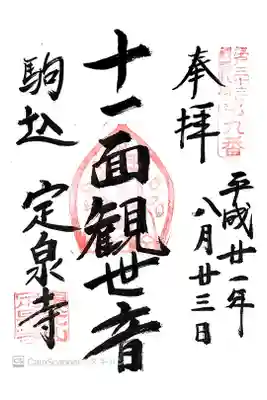 奉拝
平成廿一年
八月廿三日
十一面観世音
駒込
定泉寺
CamScanner